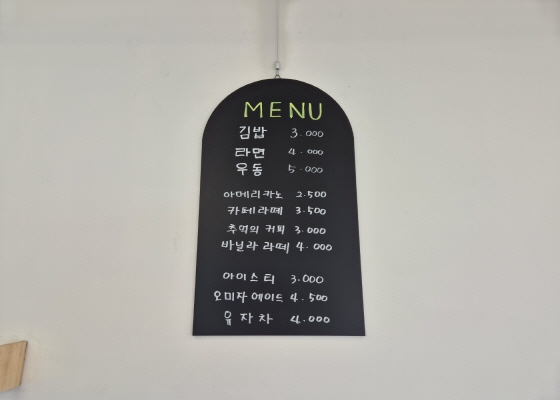 MENU
김밥 3.000
라면 4.000
우동 5.000
아메리카노 2.500
카페라떼 3.500
추억의 커피 3.000
바닐라 라떼 4.000
아이스티 3.000
오미자에이드 4.500
유자차 4.000